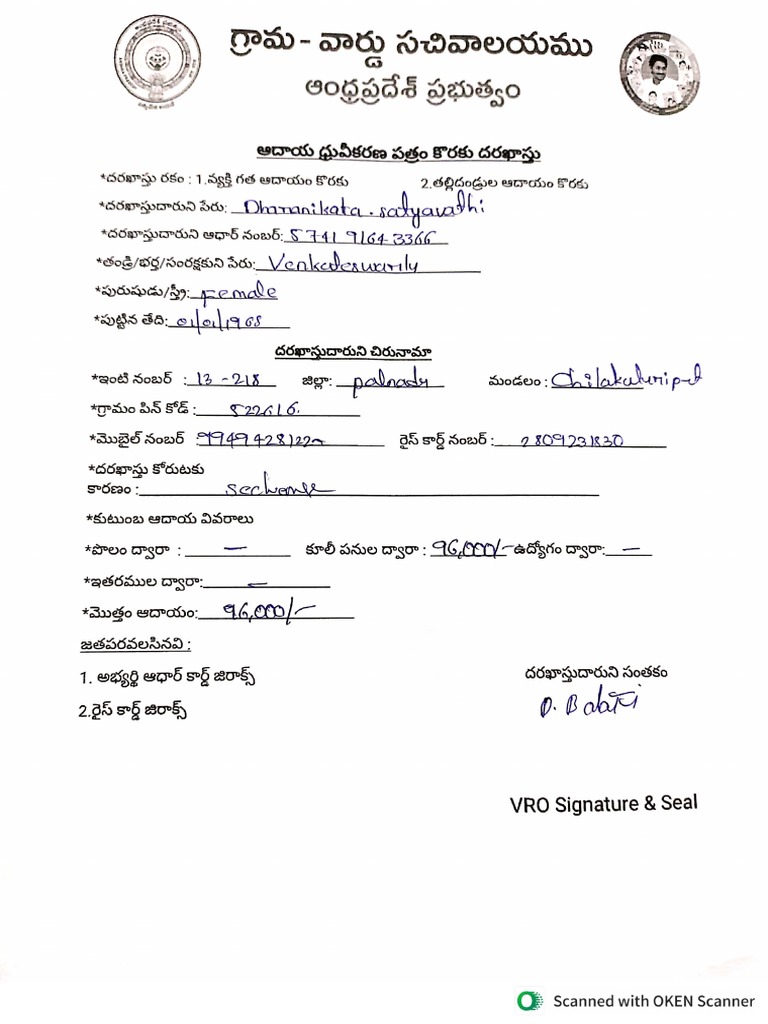 గ్రామ - వార్డు సచివాలయము
ఆంధ్రప్రదేశ్ ప్రభుత్వం
ఆదాయ ధ్రువీకరణ పత్రం కొరకు దరఖాస్తు
*దరఖాస్తు రకం : 1.వ్యక్తి గత ఆదాయం కొరకు 2.తల్లిదండ్రుల ఆదాయం కొరకు
*దరఖాస్తుదారుని పేరు: Dharanikata . Satyavathi
*దరఖాస్తుదారుని ఆధార్ నంబర్: 5741 9164 3366
*తండ్రి/భర్త/సంరక్షకుని పేరు: Venkateswarlly
*పురుషుడు/స్త్రీ: Female
*పుట్టిన తేది: 01/01/1968
దరఖాస్తుదారుని చిరునామా
*ఇంటి నంబర్ : 13 - 218 జిల్లా: palnadu మండలం: Chilakaluripet
*గ్రామం పిన్ కోడ్ : 522616.
*మొబైల్ నంబర్ 9949428122 రైస్ కార్డ్ నంబర్ : 2809231830
*దరఖాస్తు కోరుటకు
కారణం :
*కుటుంబ ఆదాయ వివరాలు
*పొలం ద్వారా : — కూలీ పనుల ద్వారా : 96,000/- ఉద్యోగం ద్వారా: —
*ఇతరముల ద్వారా: —
*మొత్తం ఆదాయం: 96,000/-
జతపరవలసినవి :
1. అభ్యర్థి ఆధార్ కార్డ్ జిరాక్స్ దరఖాస్తుదారుని సంతకం
2.రైస్ కార్డ్ జిరాక్స్ D. Balaji
VRO Signature & Seal
Scanned with OKEN Scanner